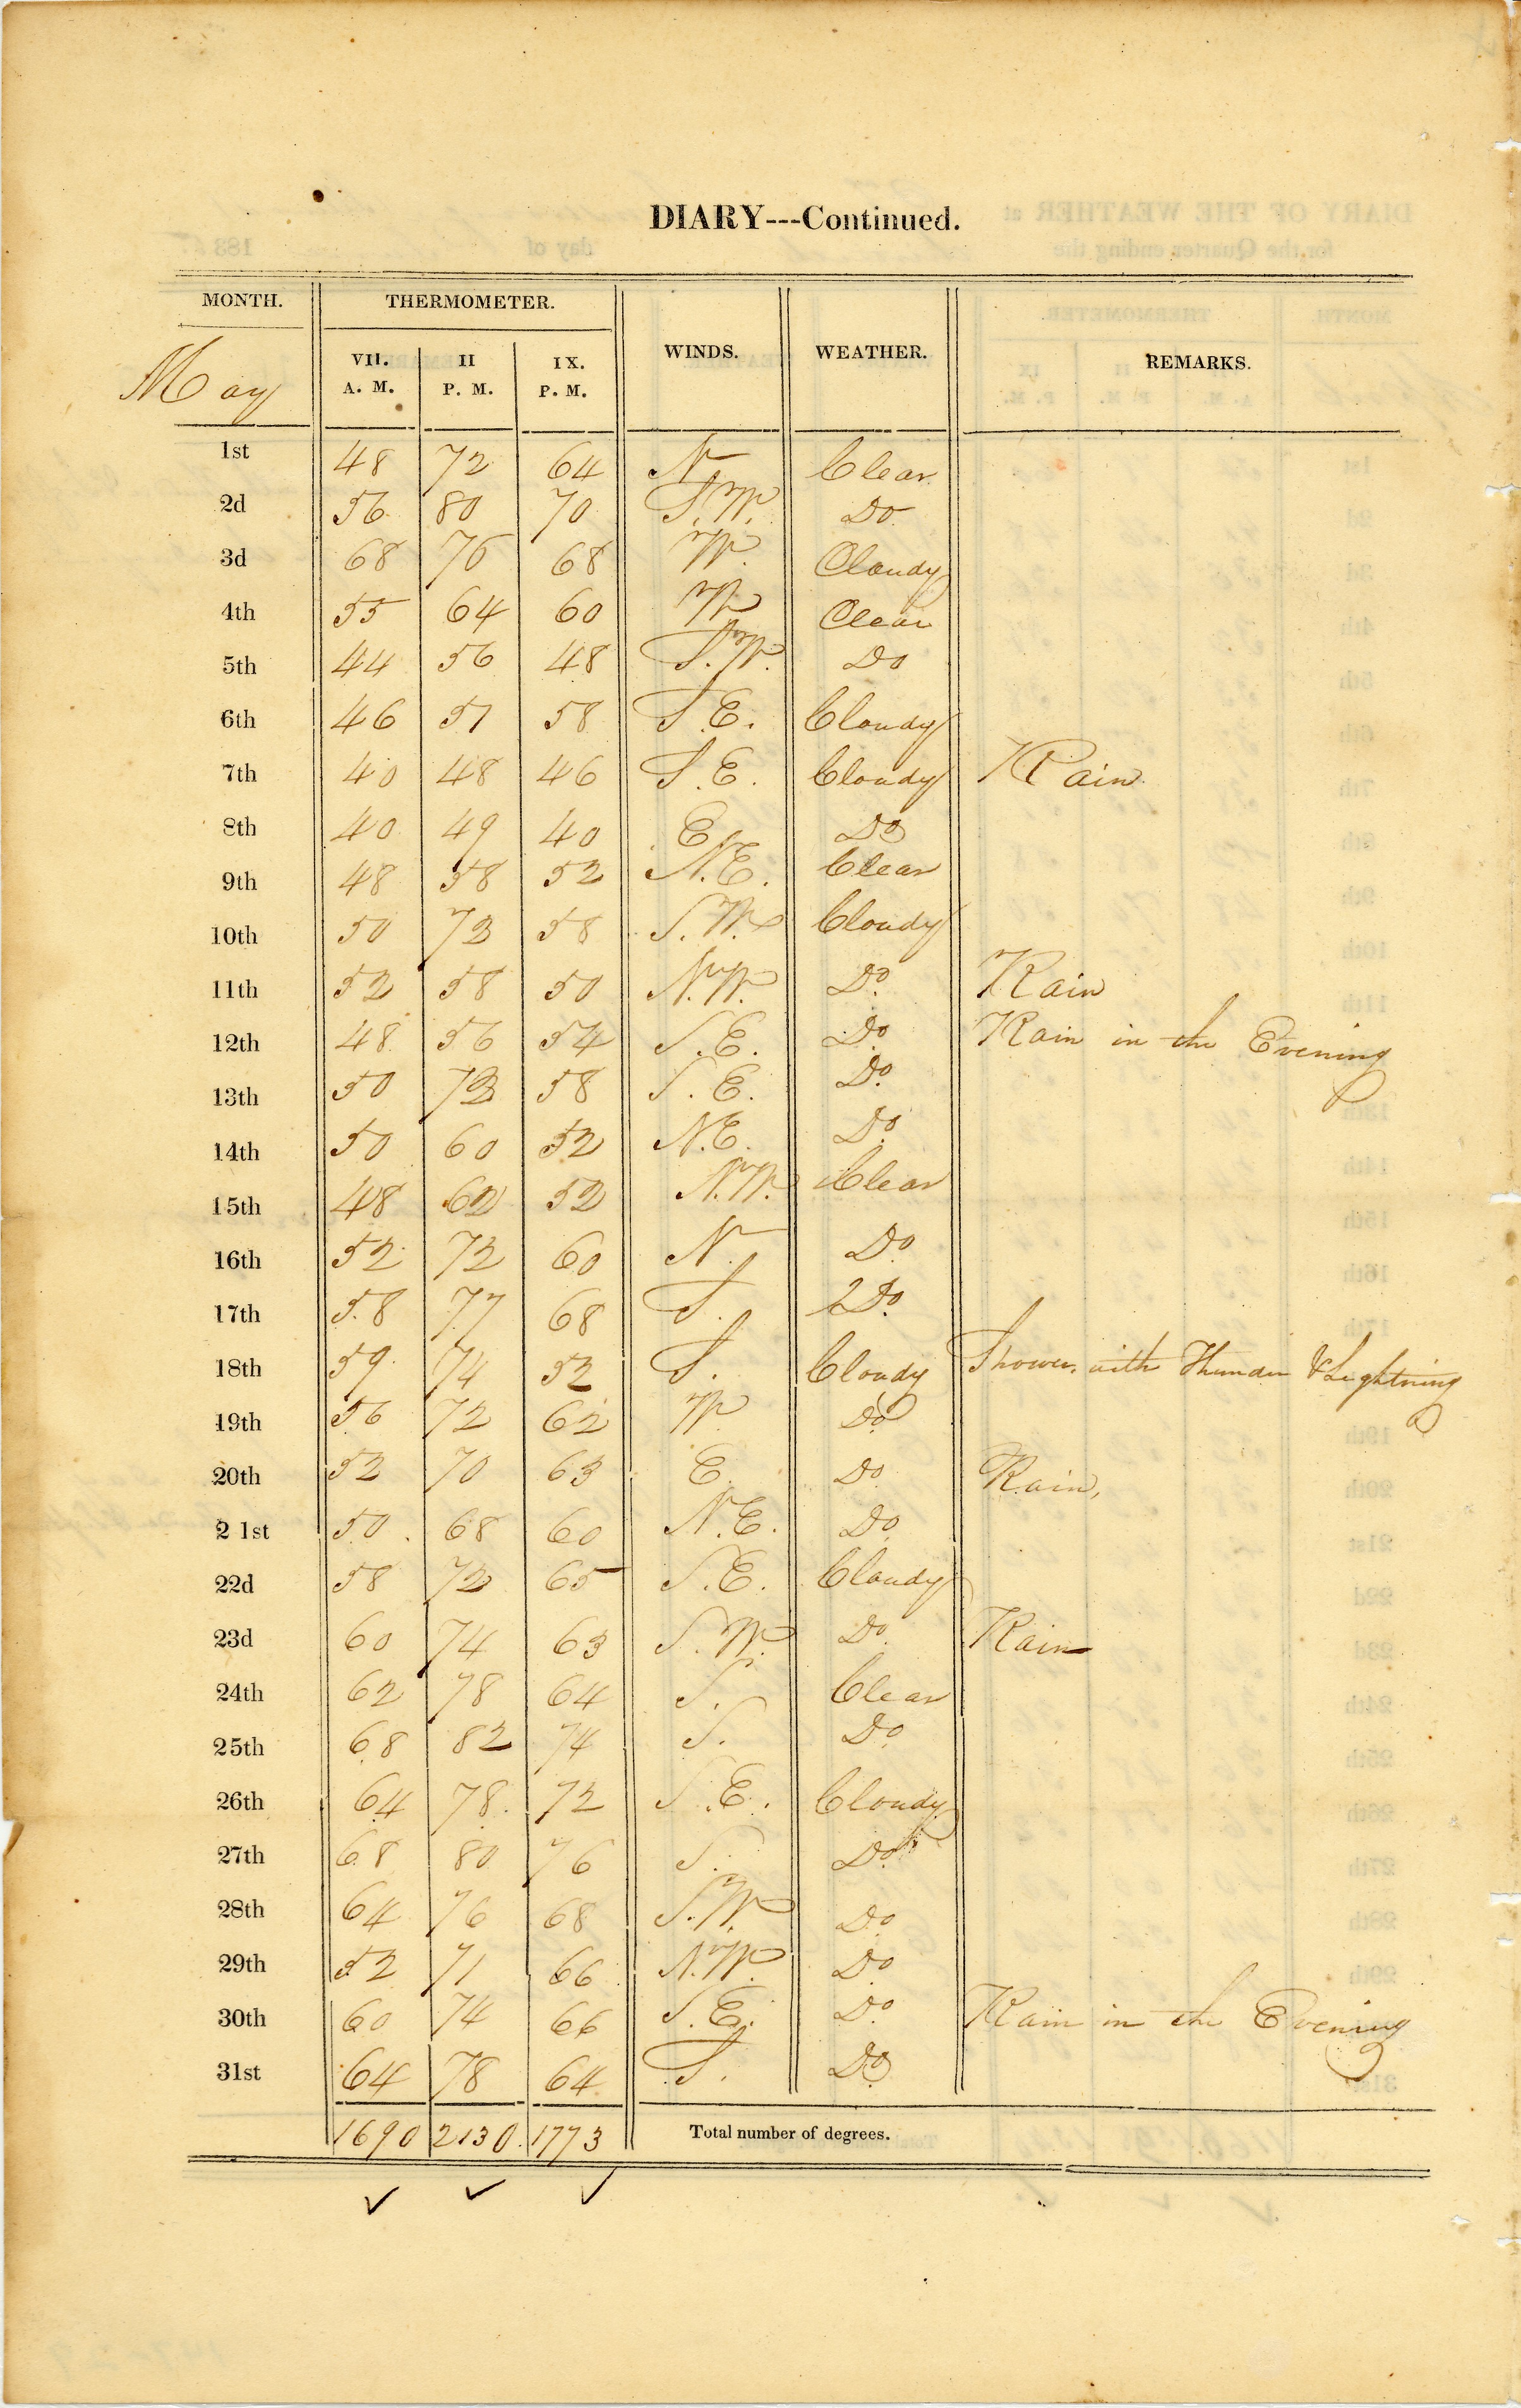 DIARY---Continued.
MONTH. THERMOMETER. WINDS. WEATHER. REMARKS.
May VII. A. M. II P. M. IX. P. M.
1st 48 72 64 N. Clear
2d 56 80 70 S.W. Do
3d 68 76 68 W. Cloudy
4th 55 64 60 W Clear
5th 44 56 48 S.W. Do
6th 46 57 58 S.E. Cloudy
7th 40 48 46 S.E. Cloudy Rain
8th 40 49 40 E Do
9th 48 58 52 N.E. Clear
10th 50 73 58 S.W. Cloudy
11th 52 58 50 N.W. Do. Rain
12th 48 56 54 S.E. Do Rain in the Evening
13th 50 73 58 S.E. Do.
14th 50 60 52 N.E. Do.
15th 48 62 52 N.W. Clear
16th 52 72 60 N. Do.
17th 58 77 68 S. Do.
18th 59 74 52 S. Cloudy Shower with Thunder & Lightning
19th 56 72 62 W Do
20th 52 70 63 E. Do Rain,
21st 50 68 60 N.E. Do
22d 58 72 65 S.E. Cloudy
23d 60 74 63 S.W. Do. Rain
24th 62 78 64 S. Clear
25th 68 82 74 S. Do
26th 64 78 72 S.E. Cloudy
27th 68 80 76 S. Do.
28th 64 76 68 S.W. Do
29th 52 71 66 N.W. Do
30th 60 74 66 S.E. Do. Rain in the Evening
31st 64 78 64 S. Do
1690 2130 1773 Total number of degrees.